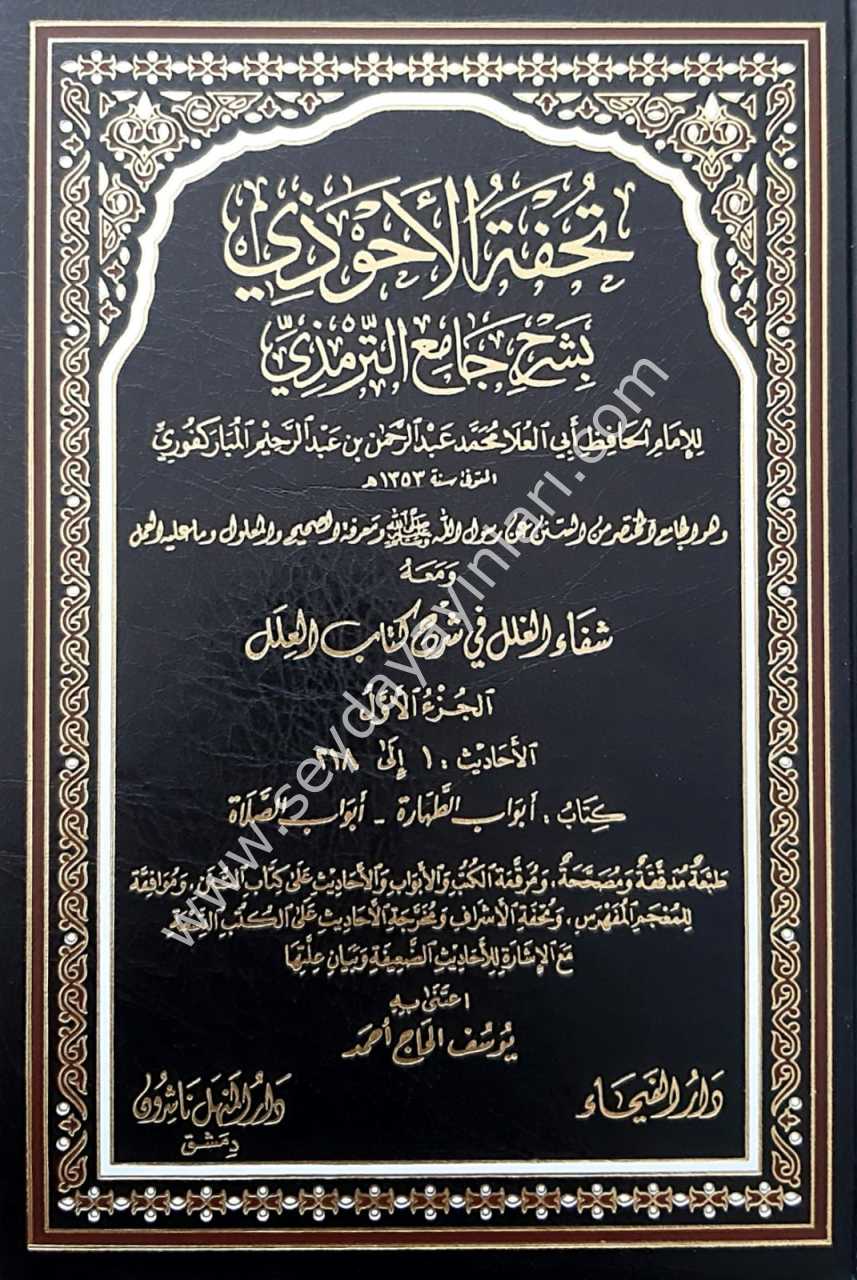 تُحْفَةُ الأَحْوَذِي
بِشَرْحِ جَامِعِ التِّرْمِذِيِّ
لِلإِمَامِ الحَافِظِ أَبِي العُلَا مُحَمَّد عَبْدِ الرَّحْمٰنِ بنِ عَبْدِ الرَّحِيمِ المُبَارَكْفُورِيِّ
المتوفى سنة ١٣٥٣هـ
وهو الجامع المختصر من السنن عن رسول الله ﷺ ومعرفة الصحيح والمعلول وما عليه العمل
وَمَعَهُ
شفاء الغلل في شرح كتاب العِلَل
الجُزْءُ الأَوَّلُ
الأَحَاديث : ١ إِلَىٰ ٣١٨
كِتَابُ : أَبْوَاب الطَّهَارَة - أَبْوَاب الصَّلَاة
طَبْعَةٌ مُدَقَّقَةٌ وَمُصَحَّحَةٌ، وَمُرَقَّمَة الكُتُبِ وَالأَبْوَابِ وَالأَحَادِيثِ عَلَىٰ كِتَابِ السُّنَنِ، وَمُوَافِقَة
لِلْمُعْجَمِ المُفَهْرَسِ، وَتُحْفَةِ الأَشْرَافِ وَمُخَرَّجَة الأَحَادِيثِ عَلَىٰ الكُتُبِ التِّسْعَةِ
مَعَ الإِشَارَةِ لِلأَحَادِيثِ الضَّعِيفَةِ وَبَيَانِ عِلَّتِهَا
اعتَنَىٰ بِهِ
يُوسُف الحَاج أَحمَد
دَارُ الفَيْحَاء
دَارُ المَنْهَل نَاشِرُون
دِمَشق
www.seydayayinlari.com